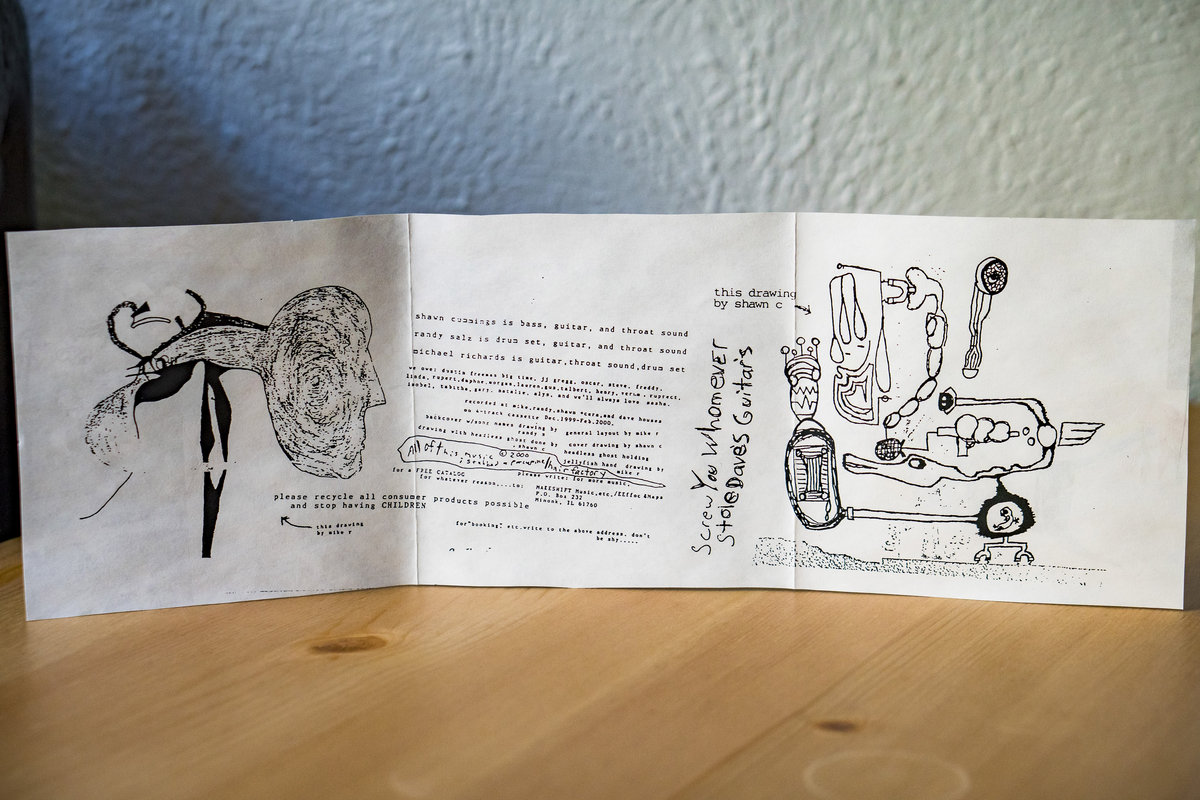 please recycle all consumer products possible
and stop having CHILDREN
this drawing
by mike r
shawn cummings is bass, guitar, and throat sound
randy salz is drum set, guitar, and throat sound
michael richards is guitar,throat sound,drum set
we owe: dustin freeman big time, jj gregg, oscar, steve, freddy,
linda, rupert, daphne, morgan, lauren, gus, talbert, henry,
isobel, tabitha, natalie, and we'll always love
recorded at mike,randy,shawn and dave houses
on 4-track cassette Dec.1999-Feb.2000.
backcover w/song names drawing by
randy s
general layout by mike r
drawing with headless ghost done by
shawn c
cover drawing by shawn c
headless ghost holding
jellyfish hand drawing by
mike r
All of this music © 2000
hairfactory
for a FREE CATALOG
please write: for more music,
for whatever reason....to:
MAKESHIFT Music,etc./
P.O. Box 232
Minonk, IL 61760
for "booking" etc.write to the above address. don't
be shy.....
Screw You Whomever
Stole Daves Guitars
this drawing
by shawn c